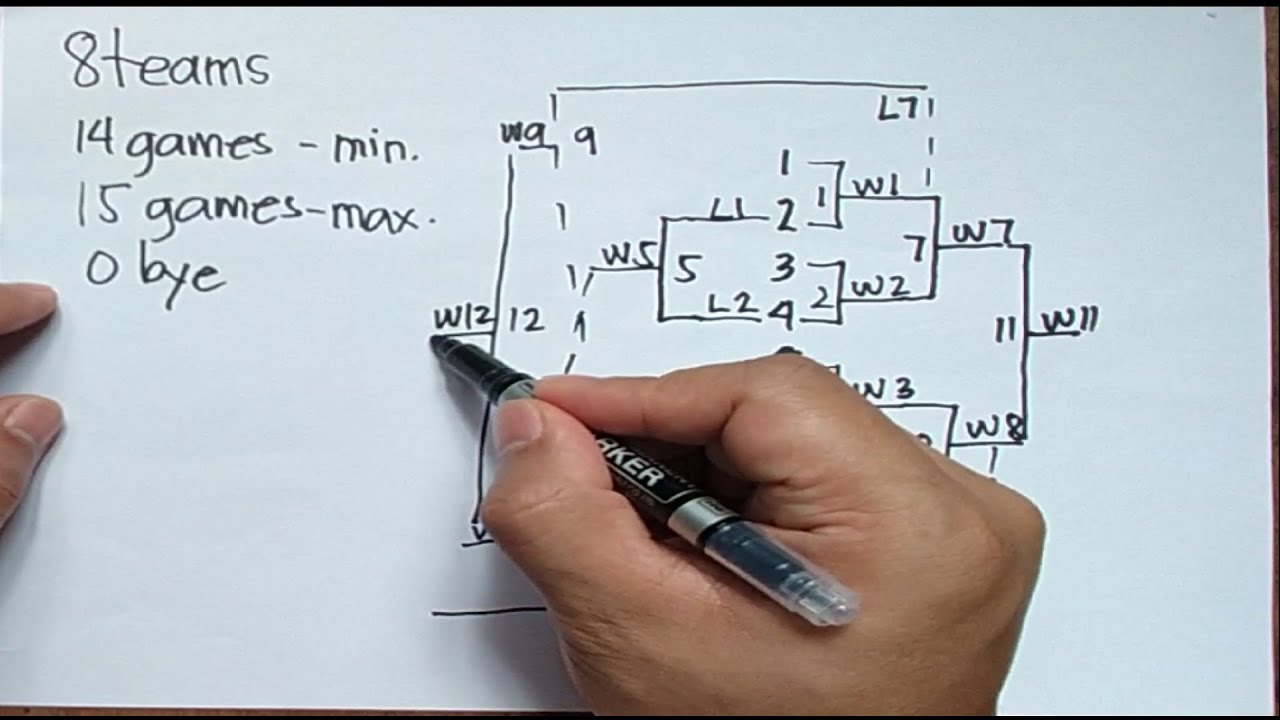 8teams
14 games - min.
15 games-max.
0 bye
L7
W9 9
1
1 W1
L1 2
W5 5
3
7 W7
L2 4
2 W2
W12 12
11 W11
W3
W8
RKER